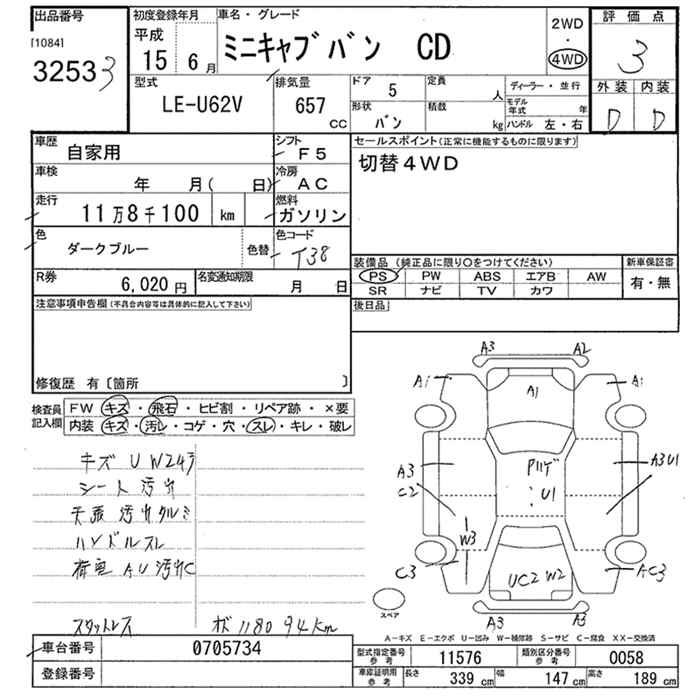 出品番号 初度登録年月 車名・グレード 2WD 評価点
[1084] 平成 ミニキャブバン CD ・ 3
32533 15年 6月 4WD 外装 内装
型式 排気量 ドア 5 定員 人 ディーラー・並行 D D
LE-U62V 657 CC 形状 バン 積載 kg モデル年式 年
ハンドル 左・右
車歴 自家用 シフト F5 セールスポイント(正常に機能するものに限ります)
車検 年 月( 日) 冷房 AC 切替4WD
走行 11万8千100 km 燃料 ガソリン
色 ダークブルー 色替 色コード T38
装備品(純正品に限り○をつけてください) 新車保証書
R券 6,020円 名変通知期限 月 日 PS PW ABS エアB AW 有・無
SR ナビ TV カワ
注意事項申告欄(不具合内容等は具体的に記入して下さい) 後日品
修復歴 有〔箇所 〕
検査員記入欄 FW キズ・飛石・ヒビ割・リペア跡・×要
内装 キズ・汚レ・コゲ・穴・スレ・キレ・破レ
A3 A2
A1 A1 A1
キズ U W24ヶ
シート汚レ
天張汚レタルミ
ハンドルスレ
荷室 AU汚レC
A3 C2 U1 A3U1
W3
C3 UC2 W2 AC3
スペア A3 A3
スタットレス 118094km
A-キズ E-エクボ U-凹み W-補修跡 S-サビ C-腐食 XX-交換済
車台番号 0705734 型式指定番号 参考 11576 類別区分番号 参考 0058
登録番号 車庫証明用 参考 長さ 339 cm 幅 147 cm 高さ 189 cm